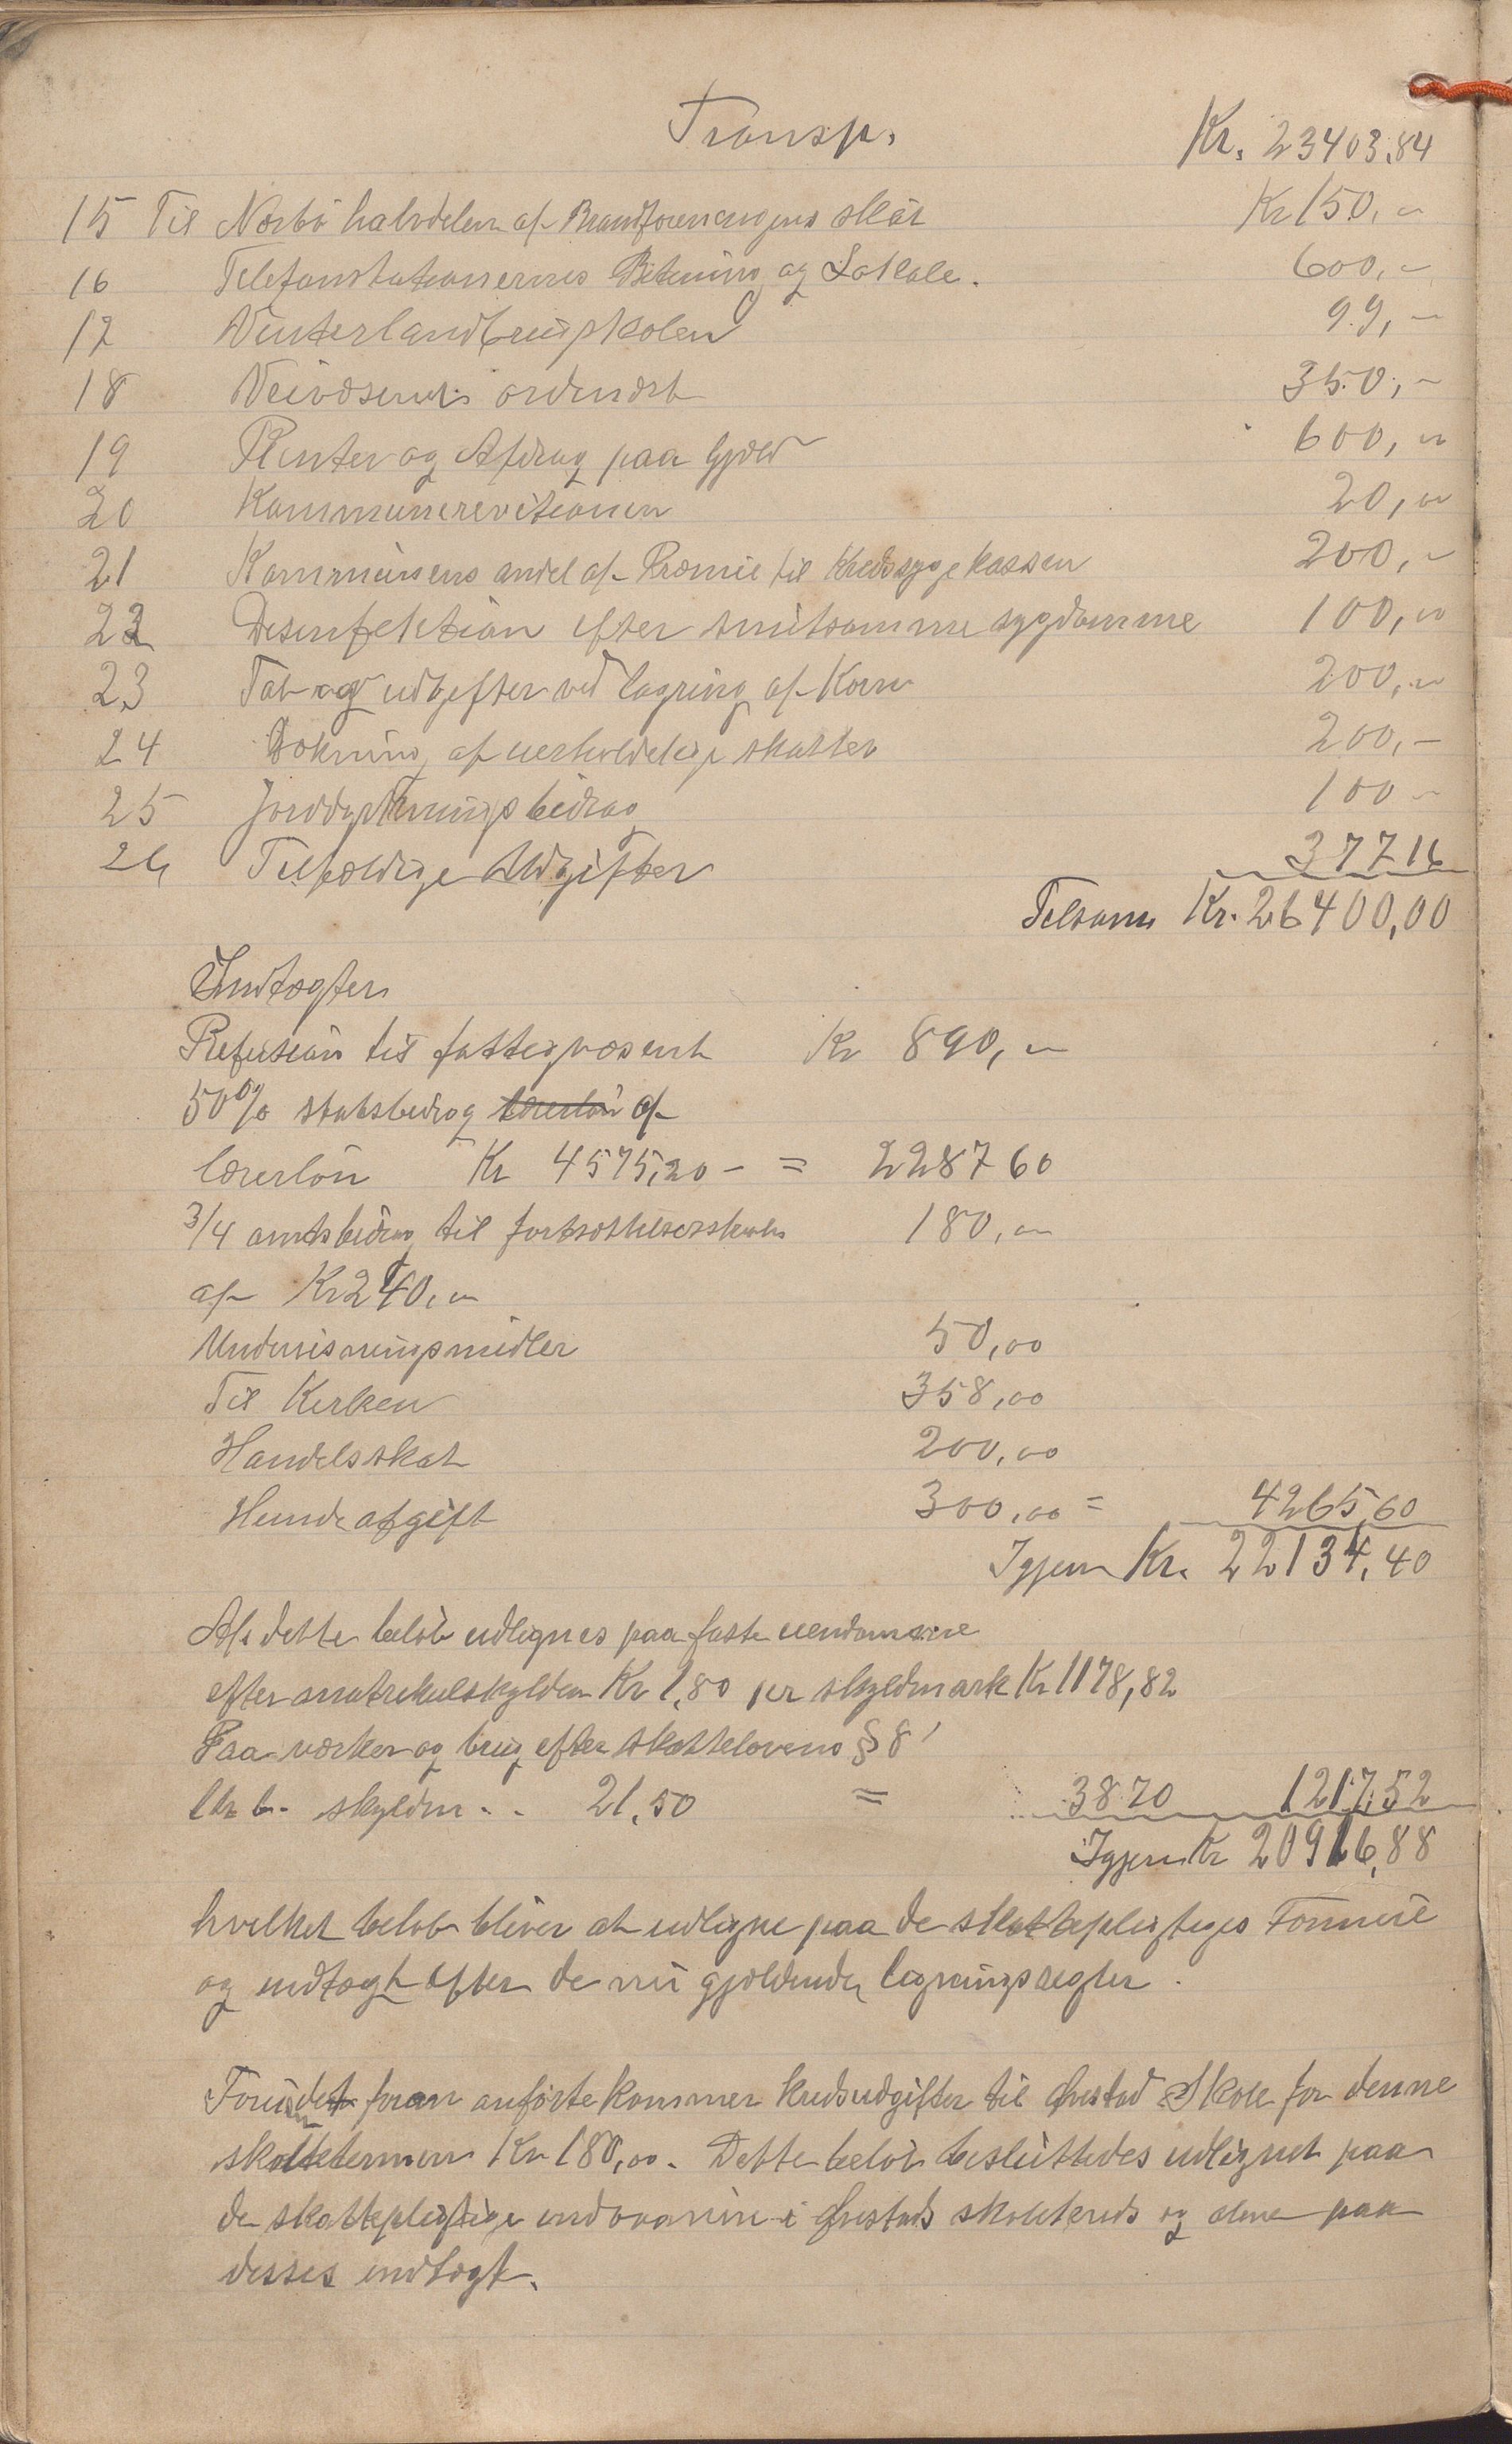 Transp. Kr. 23403,84
15 Til Nærbö halvdelen af Brandforeningens skat Kr 150,-
16 Telefonstationernes Betening og Lokale. 600,-
17 Vinterlandbrugskolen 99,-
18 Veivæsenet ordinært 350,-
19 Renter og Afdrag paa Gjæld 600,-
20 Kommunerevitionen 20,00
21 Kommunens andel af Præmie til Kredssygekassen 200,-
22 Desinfektion efter smitsomme sygdomme 100,00
23 Tab og udgifter ved lagring af Korn 200,-
24 Dækning af uerholdelige skatter 200,-
25 Jorddyrkningsbidrag 100 -
26 Tilfældige Udgifter 377 16
Tilsam Kr. 26400,00
Indtægter
Refusion til fattigvæsent Kr 890,-
50% statsbidrag lærerlön af
lærerlön Kr 4575,20 - = 2287 60
3/4 amtsbidrag til fortsættelsesskole 180,-
af Kr 240,-
Undervisningsmidler 50,00
Til Kirken 358,00
Handelsskat 200,00
Hundeafgift 300,00 = 4265,60
Igjen Kr. 22134,40
Af dette belöb udlignes paa faste eiendomme
efter matrikulskylden Kr 1,80 per skyldmark Kr 1178,82
Paa værker og brug efter skatteloven §8
skyldm.. 21,50 = 38.70 1217,52
Igjen Kr 20916,88
hvilket belöb bliver at udligne paa de skattepligtiges Formue
og indtægt efter de nu gjældende ligningsregler.
Foruden det foran anförte kommer kredsudgifter til Skole for denne
skattetermin Kr 180,00. Dette belöb besluttedes udlignet paa
de skattepligtige indvaanere i skolekreds og alene paa
desses indtægt.